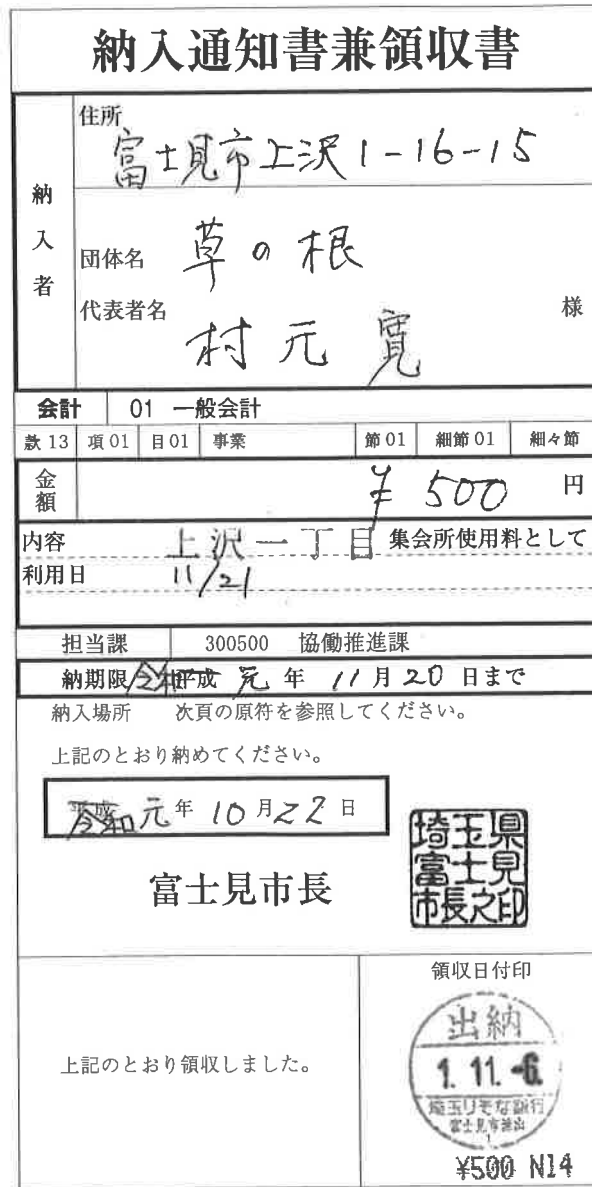 納入通知書兼領収書
納入者
住所
富士見市上沢1-16-15
団体名 草の根
代表者名 村元 寛 様
会計 01 一般会計
款 13 項 01 目 01 事業 節 01 細節 01 細々節
金額 ¥500 円
内容 上沢一丁目 集会所使用料として
利用日 11/21
担当課 300500 協働推進課
納期限 令和 平成 元 年 11 月 20 日まで
納入場所 次頁の原符を参照してください。
上記のとおり納めてください。
令和 元 年 10 月 22 日
富士見市長
埼玉県
富士見
市長之印
領収日付印
上記のとおり領収しました。
出納
1. 11. -6.
埼玉りそな銀行
富士見市派出
1
¥500 N14